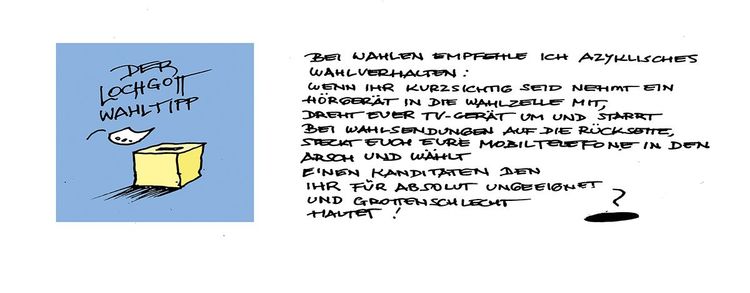 DER
LOCHGOTT
WAHLTIPP
BEI WAHLEN EMPFEHLE ICH AZYKLISCHES
WAHLVERHALTEN:
WENN IHR KURZSICHTIG SEID NEHMT EIN
HÖRGERÄT IN DIE WAHLZELLE MIT,
DREHT EUER TV-GERÄT UM UND STARRT
BEI WAHLSENDUNGEN AUF DIE RÜCKSEITE,
STECKT EUCH EURE MOBILTELEFONE IN DEN
ARSCH UND WÄHLT
EINEN KANDITATEN DEN
IHR FÜR ABSOLUT UNGEEIGNET
UND GROTTENSCHLECHT
HALTET!